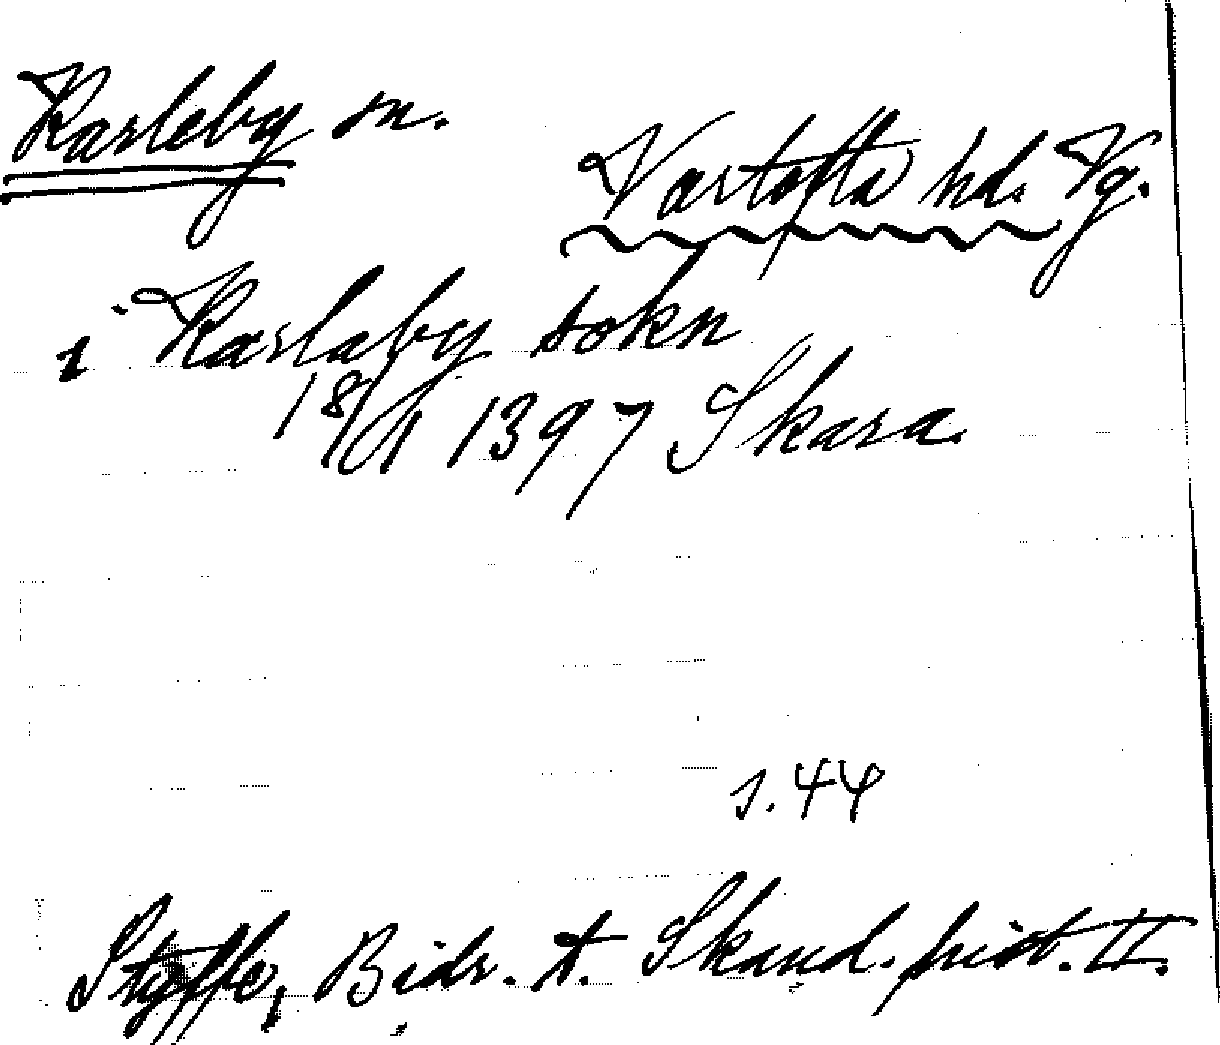 Karleby sn.
Vartofta hd. Vg.
i Karlaby sokn
18/11 1397 Skara.
s. 44
Styffe, Bidr. t. Skand. hist. II.